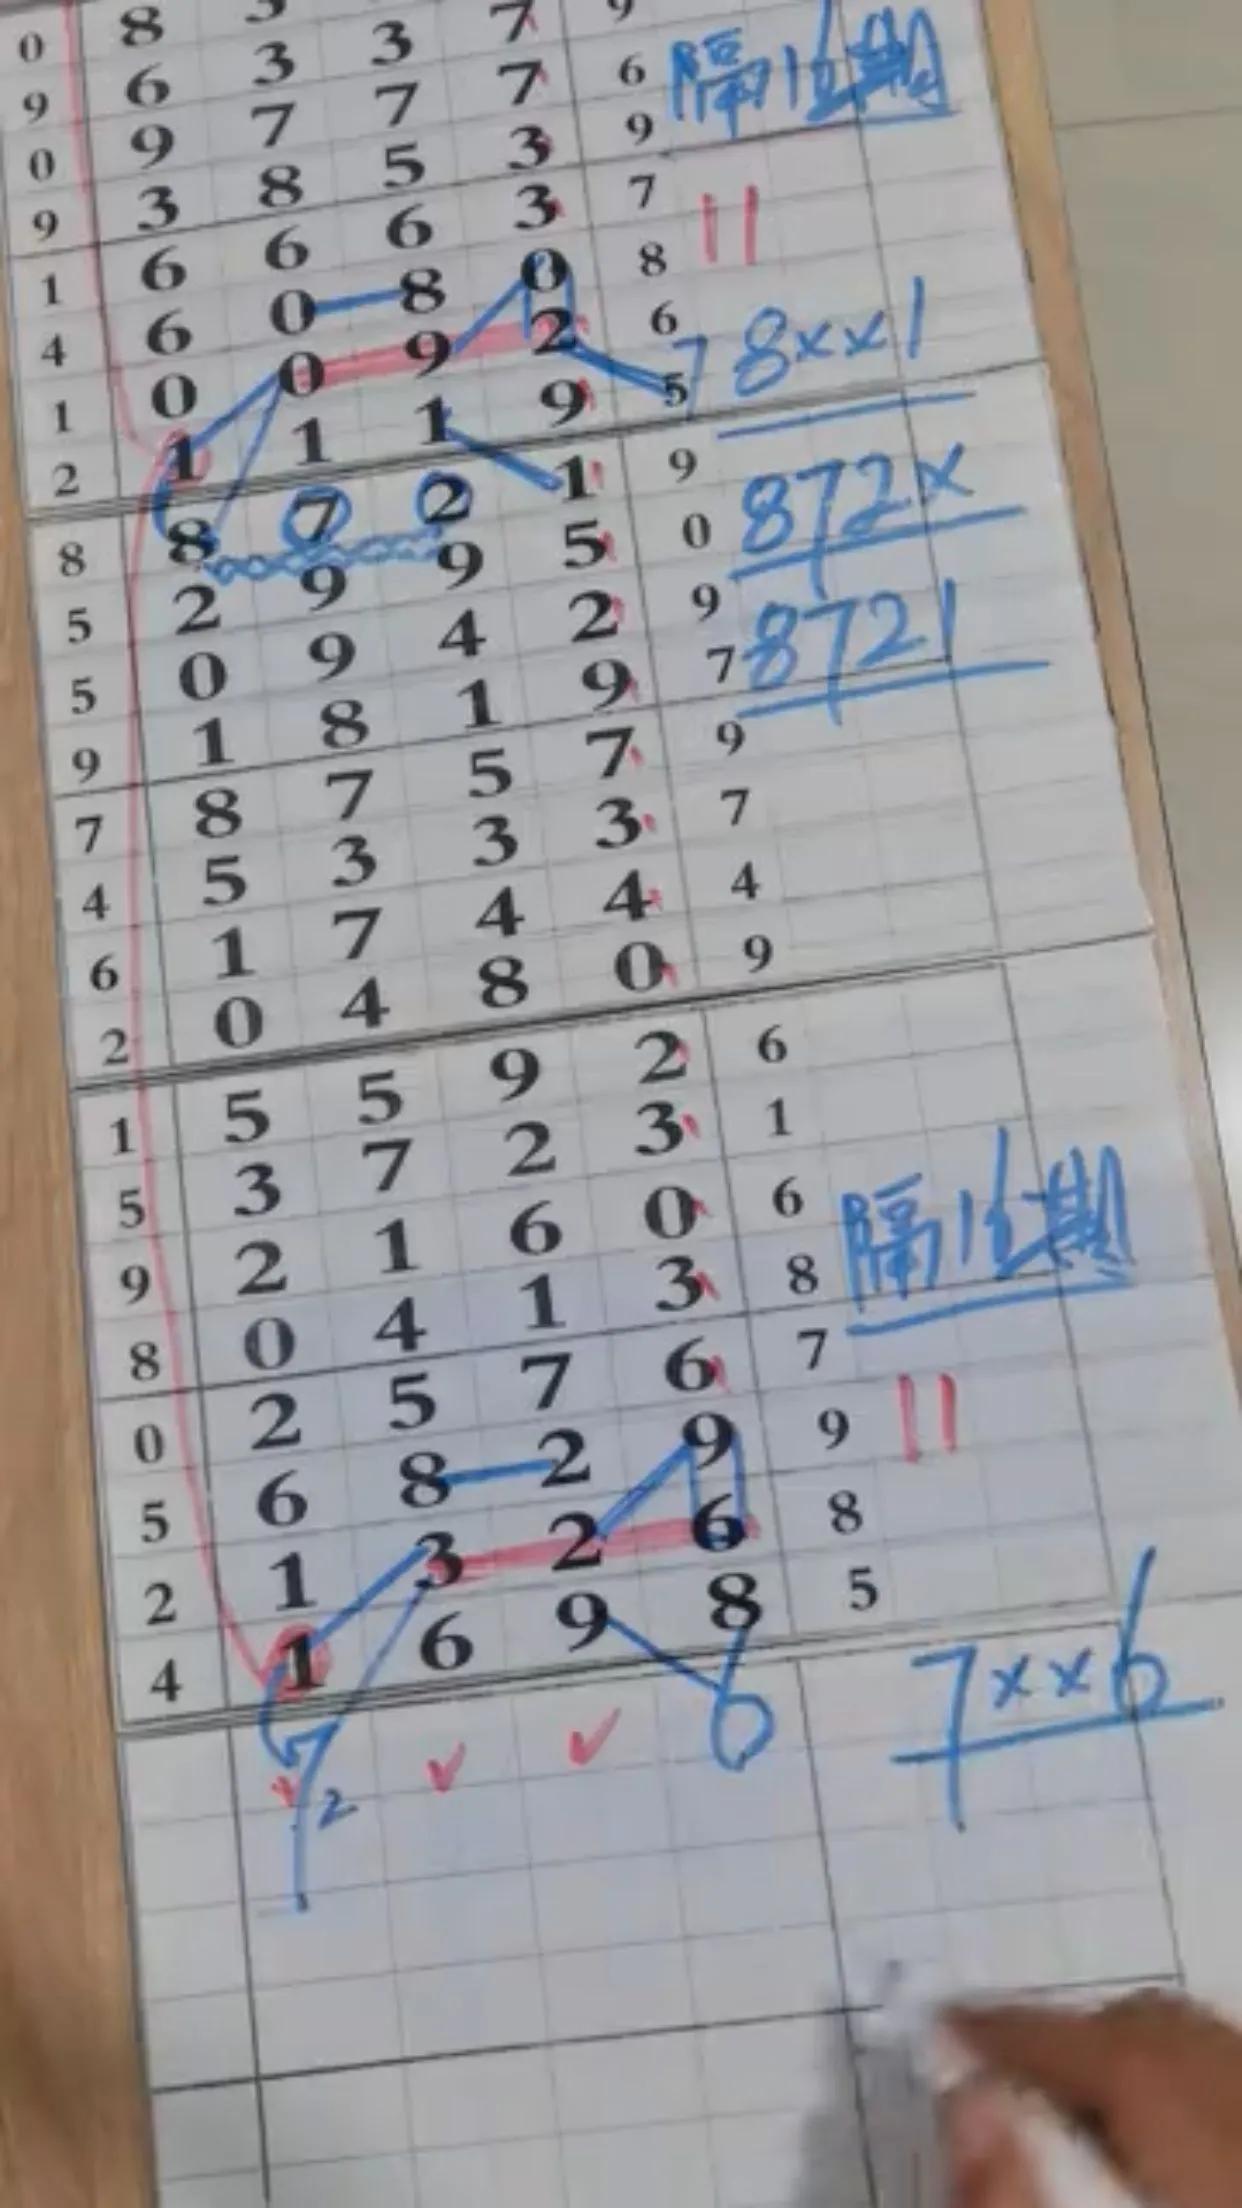 9
0 8 3 7
9 6 3 3 7 6 隔16期
0 9 7 7 3 9
9 3 8 5 3 7 11
1 6 6 6 0 8
4 6 0 8 2 6 7 8xx1
1 0 0 9 9 5
2 1 1 1 1 9 872x
8 8 7 2 5 0
5 2 9 9 2 9 8721
5 0 9 4 9 7
9 1 8 1 7 9
7 8 7 5 3 7
4 5 3 3 4 4
6 1 7 4 0 9
2 0 4 8 2 6
1 5 5 9 3 1
5 3 7 2 0 6 隔16期
9 2 1 6 3 8
8 0 4 1 6 7
0 2 5 7 9 9 11
5 6 8 2 6 8
2 1 3 2 8 5
4 1 6 9 7xx6
7 ✓ ✓ 6
2